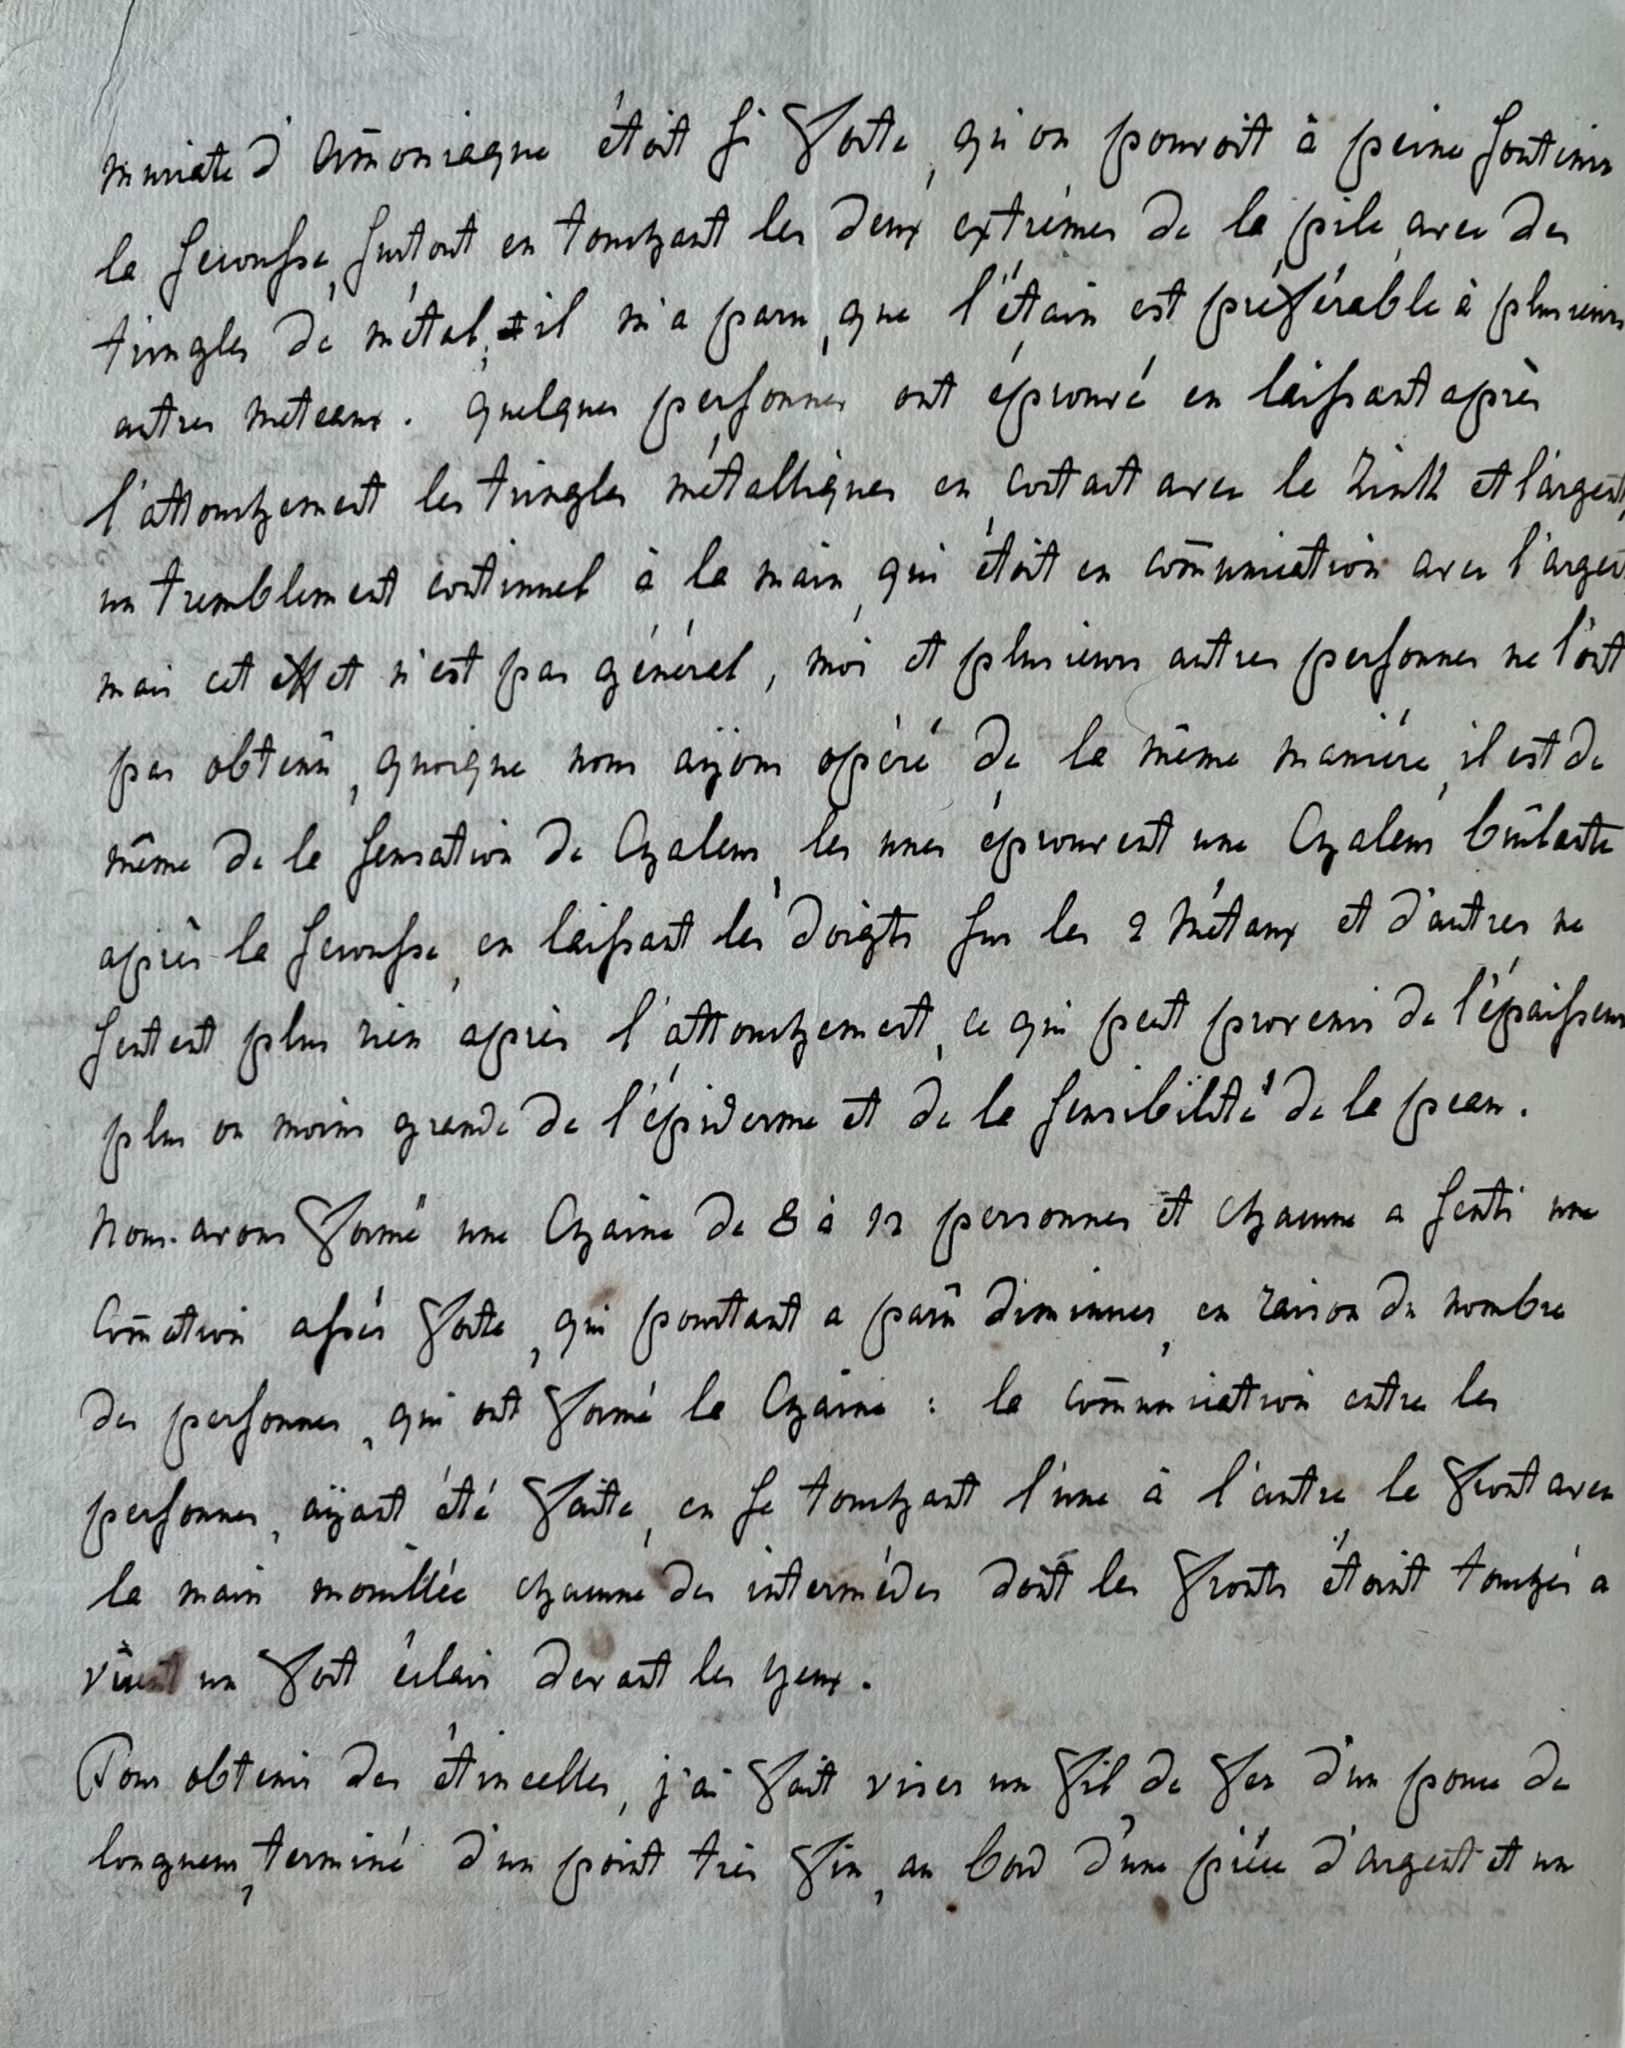 muriate d'Am̄oniaque étoit si forte, qu'on pouvoit à peine soutenir
la secousse, surtout en touchant les deux extrémes de la pile avec des
tringles de métal, il m'a paru, que l'étain est préférable à plusieurs
autres meteaux. Quelques personnes ont éprouvé en laissant après
l'attouchement les tringles métalliques en contact avec le Zink et l'argent,
un tremblement continuel à la main, qui étoit en com̄unication avec l'argent,
mais cet effet n'est pas général, moi et plusieurs autres personnes ne l'ont
pas obtenû, quoique nous aÿons opéré de la même maniére, il est de
même de la sensation de Chaleur, les unes éprouvent une Chaleur brûlante
après la secousse, en laissant les doigts sur les 2 Métaux et d'autres ne
sentent plus rien après l'attouchement, ce qui peut provenir de l'épaisseur
plus ou moins grande de l'épiderme et de la sensibilité de la peau.
Nous avons formé une Chaine de 8 à 12 personnes et chacune a senti une
Com̄otion assés forte, qui pourtant a parû diminuer, en raison du nombre
des personnes, qui ont formé la Chaine : la com̄unication entre les
personnes, aÿant été faite, en se touchant l'une à l'autre le front avec
la main mouillée chacune des intermédes dont les fronts étoint touchés a
vû un fort éclair devant les yeux.
Pour obtenir des étincelles, j'ai fait visser un fil de fer d'un pouce de
longueur, terminé d'un point très fin, au bord d'une piéce d'argent et un